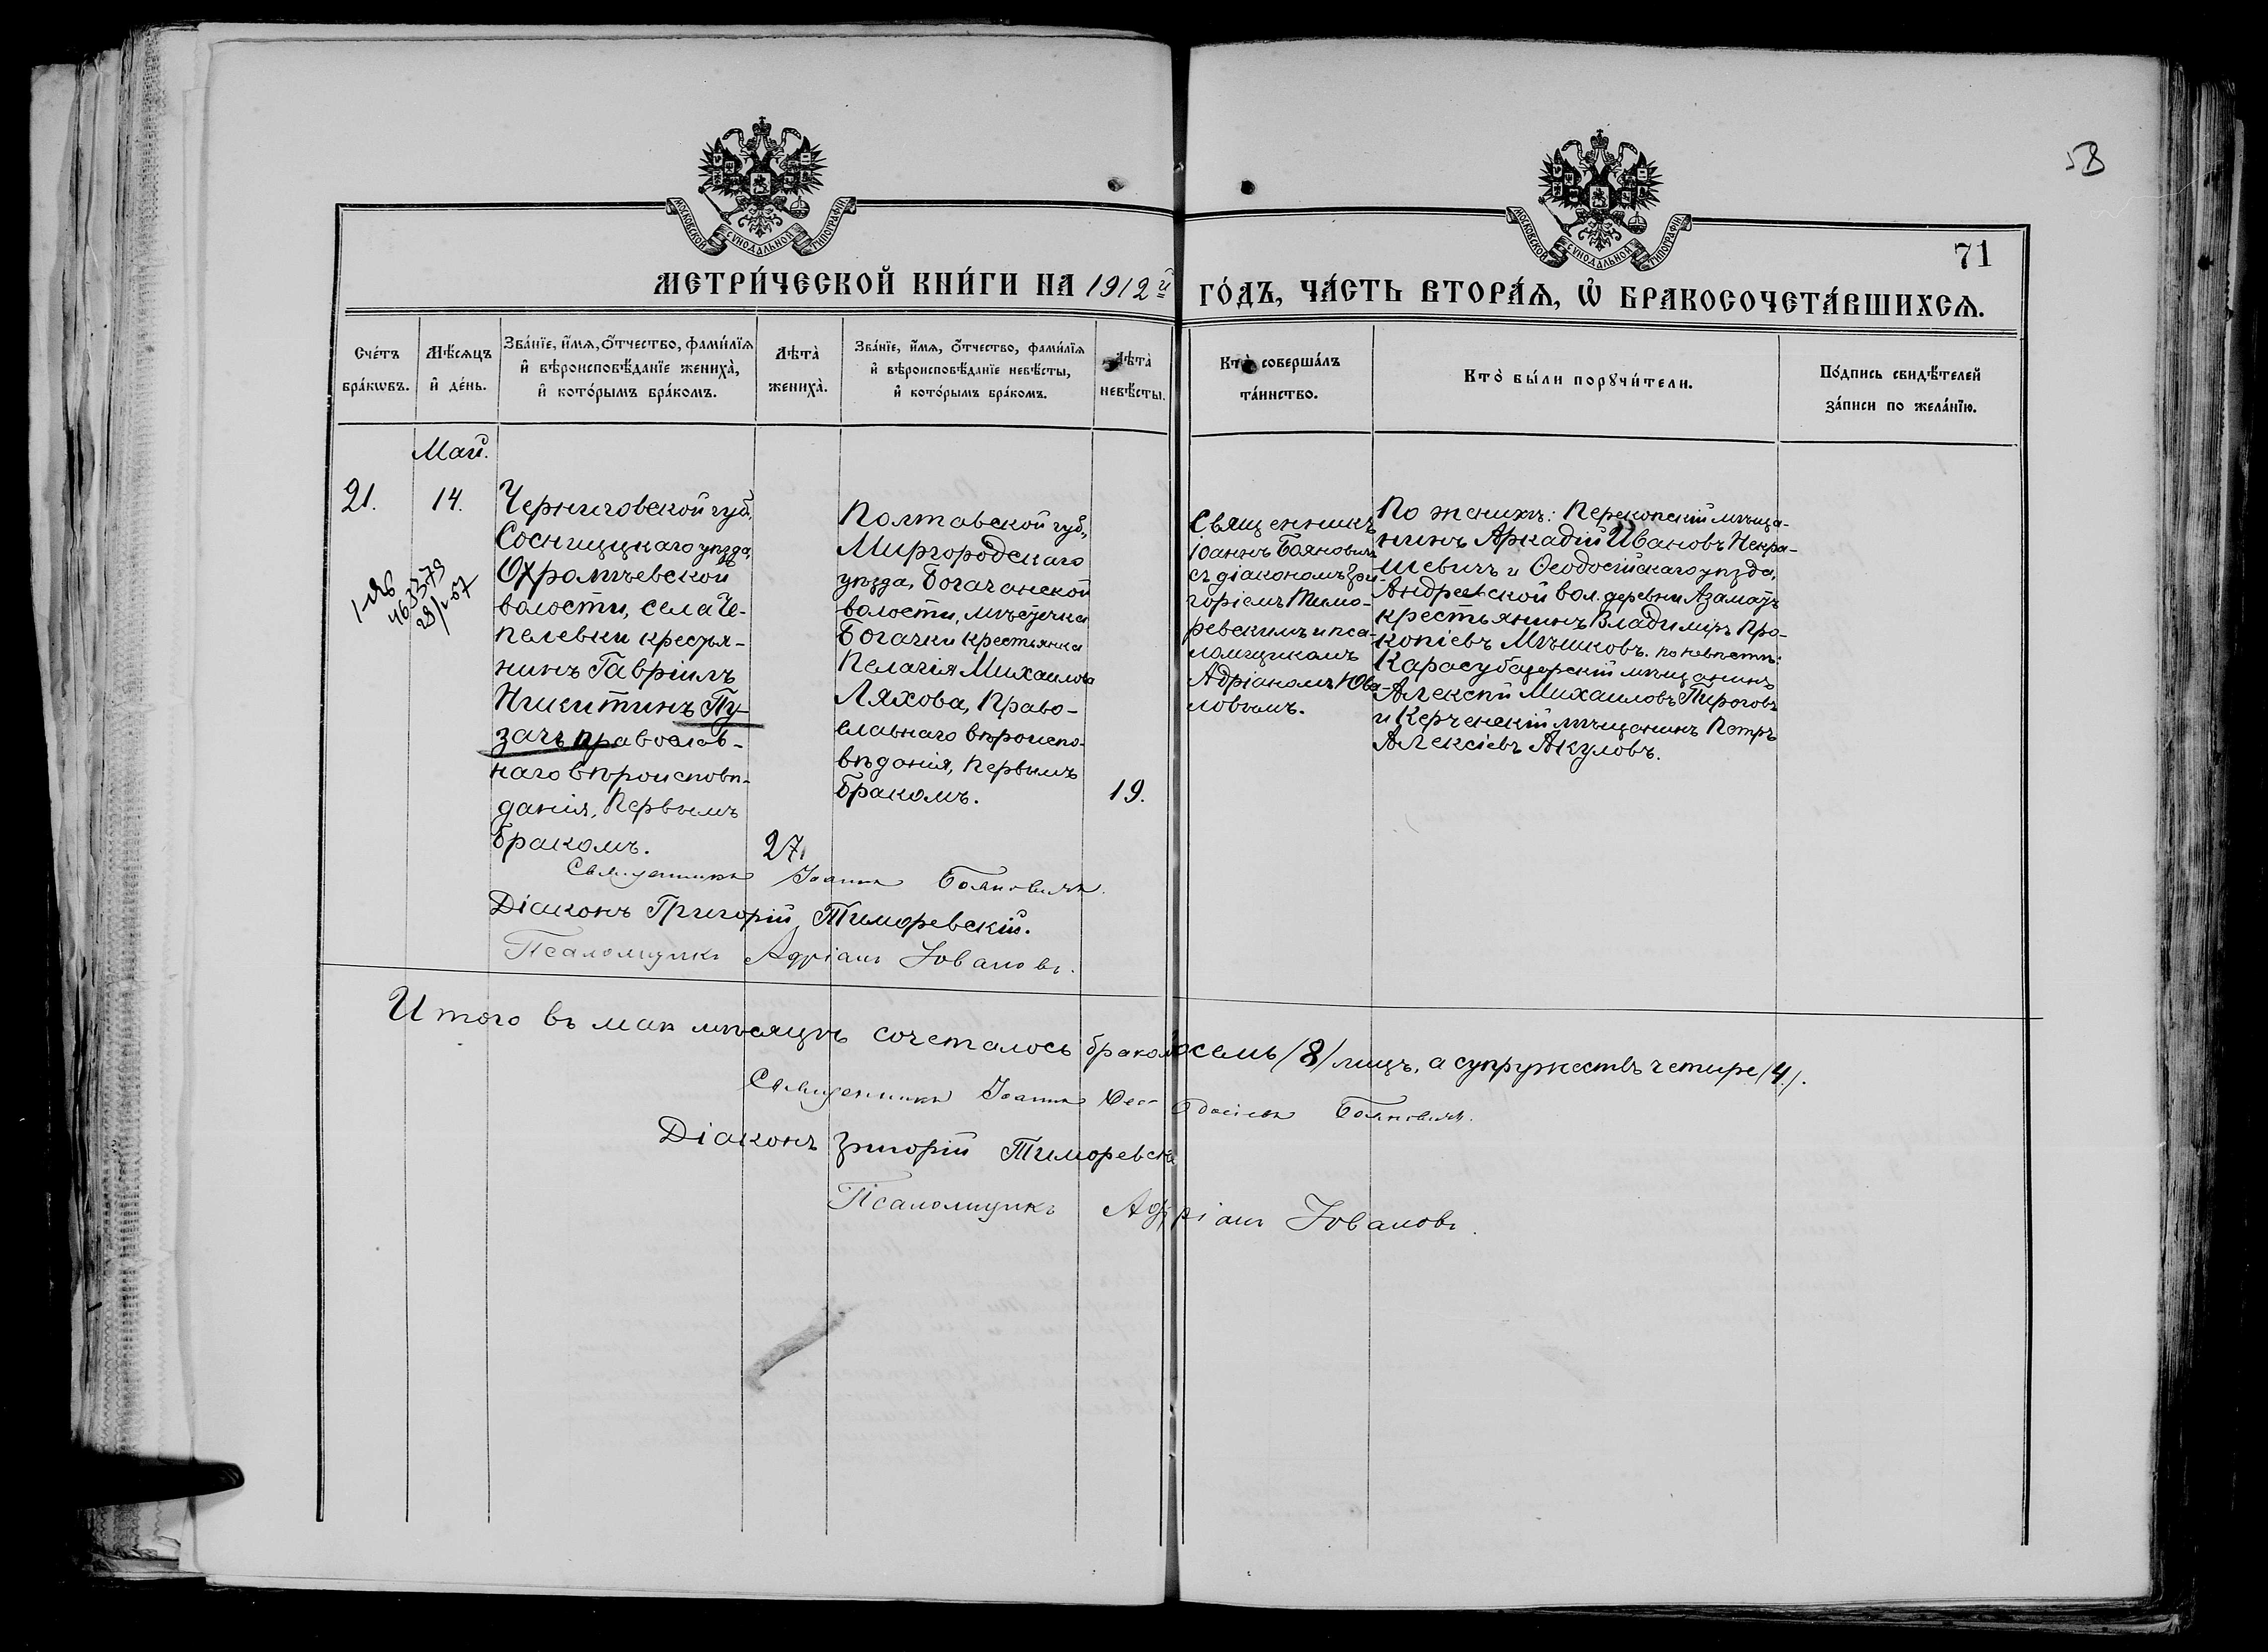 58
МОСКОВСКОЙ СУНОДАЛЬНОЙ ТИПОГРАФІИ
МОСКОВСКОЙ СУНОДАЛЬНОЙ ТИПОГРАФІИ
71
МЕТРИ́ЧЕСКОЙ КНИ́ГИ НА 1912й ГО́ДЪ, ЧА́СТЬ ВТОРА́Ѧ, Ѡ҆ БРАКОСОЧЕТА́ВШИХСѦ.
Сче́тъ
бра́кωвъ.
Мѣ́сѧцъ
и҆ де́нь.
Зва́нїе, и҆́мѧ, ѻ҆́тчество, фами́лїѧ
и҆ вѣроисповѣ́данїе жениха̀,
и҆ кото́рымъ бра́комъ.
Лѣта̀
жениха̀.
Зва́нїе, и҆́мѧ, ѻ҆́тчество, фами́лїѧ
и҆ вѣроисповѣ́данїе невѣ́сты,
и҆ кото́рымъ бра́комъ.
Лѣта̀
невѣ́сты.
Кто̀ соверша́лъ
та́инство.
Кто̀ бы́ли порꙋчи́тели.
По́дпись свидѣ́телей
за́писи по жела́нїю.
Май.
21.
14.
463379
Черниговской губ.,
Сосницкаго уѣзда,
Охрамѣевской
волости, села Че-
пелевки крестья-
нинъ Гавріилъ
Никитинъ Пу-
зачъ православ-
наго вѣроисповѣ-
данія, Первымъ
бракомъ.
27.
Полтавской губ.,
Миргородскаго
уѣзда, Богачанской
волости, мѣстечка
Богачки крестьянка
Пелагія Михаилова
Ляхова, Право-
славнаго вѣроиспо-
вѣданія, первымъ
бракомъ.
19.
Священникъ
Іоаннъ Бояновичъ
съ діакономъ Гри-
горіемъ Тимо-
ревскимъ и пса-
ломщикомъ
Адріаномъ Юва-
ловымъ.
По женихѣ: Перекопскій мѣща-
нинъ Аркадій Ивановъ Некра-
шевичъ и Ѳеодосійскаго уѣзда,
Андреевской вол. деревни Азаматъ
крестьянинъ Владиміръ Про-
копіевъ Мѣшковъ. по невѣстѣ:
Карасубазарскій мѣщанинъ
Алексѣй Михаиловъ Пироговъ
и Керченскій мѣщанинъ Петръ
Алексіевъ Акуловъ.
Священникъ Іоаннъ Бояновичъ.
Діаконъ Григорій Тиморевскій.
Псаломщикъ Адріанъ Юваловъ.
Итого въ маѣ мѣсяцѣ сочеталось бракомъ восемь /8/ лицъ, а супружествъ четыре /4/.
Священникъ Іоаннъ Ѳеодосіевъ Бояновичъ.
Діаконъ Григорій Тиморевскій
Псаломщикъ Адріанъ Юваловъ.